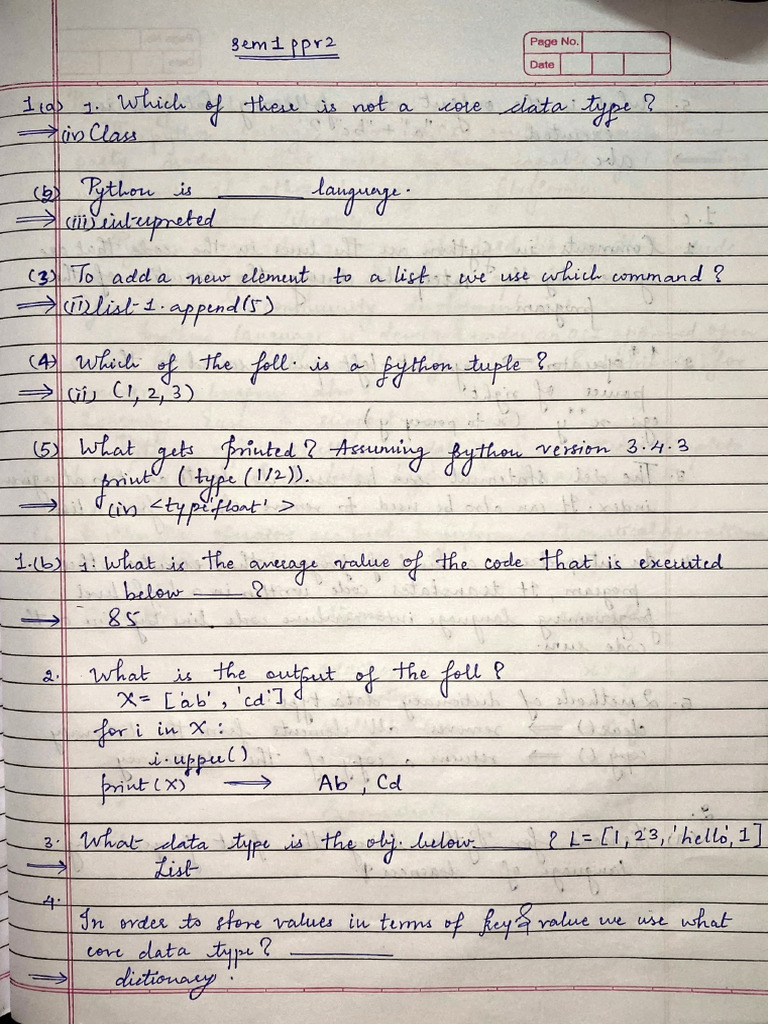 sem 1 ppr 2
Page No.
Date
1(a) 1. Which of these is not a core data type?
⇒ (iv) Class
(b) Python is ______ language.
⇒ (iii) interpreted
(3) To add a new element to a list we use which command?
⇒ (ii) list 1. append(5)
(4) Which of the foll. is a python tuple?
⇒ (ii) (1, 2, 3)
(5) What gets printed? Assuming python version 3.4.3
print (type (1/2)).
⇒ (iv) <type'float'>
1.(b) 1. What is the average value of the code that is executed
below ____ ?
⇒ 85
2. What is the output of the foll?
X = ['ab', 'cd']
for i in X :
i.upper()
print (X) → Ab , Cd
3. What data type is the obj. below ______ ? L = [1, 23, 'hello', 1]
⇒ List
4.
In order to store values in terms of key & value we use what
core data type? ________
⇒ dictionary.